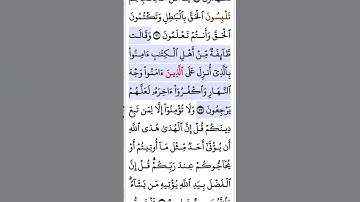 تَلْبِسُونَ ٱلْحَقَّ بِٱلْبَٰطِلِ وَتَكْتُمُونَ
ٱلْحَقَّ وَأَنتُمْ تَعْلَمُونَ ۝ وَقَالَت
طَّآئِفَةٌ مِّنْ أَهْلِ ٱلْكِتَٰبِ ءَامِنُوا۟
بِٱلَّذِىٓ أُنزِلَ عَلَى ٱلَّذِينَ ءَامَنُوا۟ وَجْهَ
ٱلنَّهَارِ وَٱكْفُرُوٓا۟ ءَاخِرَهُۥ لَعَلَّهُمْ
يَرْجِعُونَ ۝ وَلَا تُؤْمِنُوٓا۟ إِلَّا لِمَن تَبِعَ
دِينَكُمْ قُلْ إِنَّ ٱلْهُدَىٰ هُدَى ٱللَّهِ
أَن يُؤْتَىٰٓ أَحَدٌ مِّثْلَ مَآ أُوتِيتُمْ أَوْ
يُحَآجُّوكُمْ عِندَ رَبِّكُمْ قُلْ إِنَّ
ٱلْفَضْلَ بِيَدِ ٱللَّهِ يُؤْتِيهِ مَن يَشَآءُ